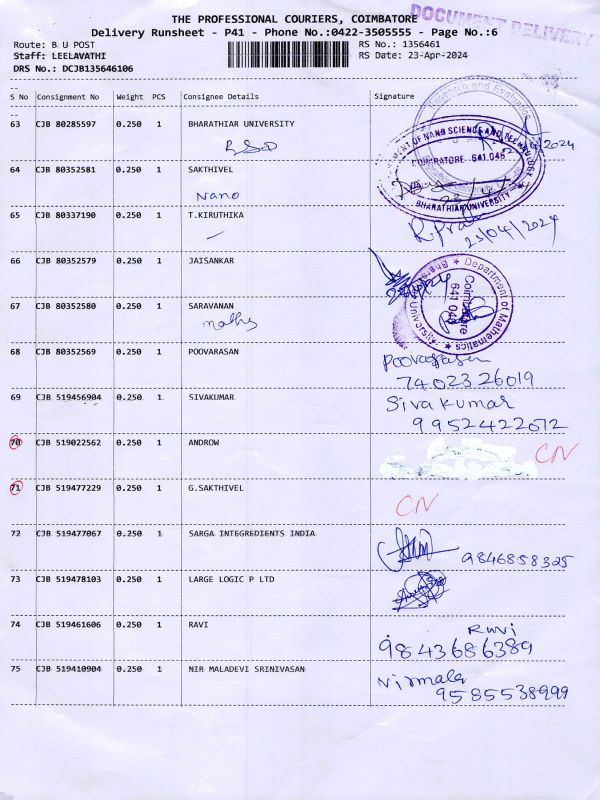 THE PROFESSIONAL COURIERS, COIMBATORE
DOCUMENT DELIVERY
Delivery Runsheet - P41 - Phone No.:0422-3505555 - Page No.:6
Route: B U POST
RS No.: 1356461
Staff: LEELAVATHI
RS Date: 23-Apr-2024
DRS No.: DCJB135646106
--
S No Consignment No Weight PCS Consignee Details Signature
--
63 CJB 80285597 0.250 1 BHARATHIAR UNIVERSITY
64 CJB 80352581 0.250 1 SAKTHIVEL
Nano
NANO SCIENCE AND TECHNOLOGY
COIMBATORE 641 046
BHARATHIAR UNIVERSITY
65 CJB 80337190 0.250 1 T.KIRUTHIKA
23/04/2024
66 CJB 80352579 0.250 1 JAISANKAR
Department of Mathematics
Coimbatore
641 046
University
67 CJB 80352580 0.250 1 SARAVANAN
maths
68 CJB 80352569 0.250 1 POOVARASAN
Poovarasan
7402326019
69 CJB 519456904 0.250 1 SIVAKUMAR
Sivakumar
9952422072
70 CJB 519022562 0.250 1 ANDROW
CN
71 CJB 519477229 0.250 1 G.SAKTHIVEL
CN
72 CJB 519477067 0.250 1 SARGA INTEGREDIENTS INDIA
9846858325
73 CJB 519478103 0.250 1 LARGE LOGIC P LTD
74 CJB 519461606 0.250 1 RAVI
Ravi
9843686389
75 CJB 519410904 0.250 1 NIR MALADEVI SRINIVASAN
Nirmala
9585538999